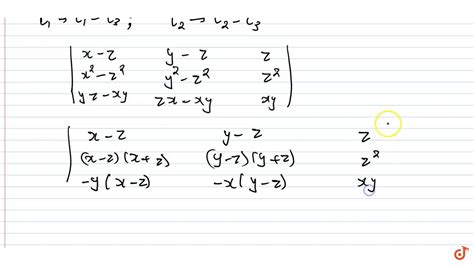 C₁ → C₁ - C₃ ; C₂ → C₂ - C₃
| x-z y-z z |
| x²-z² y²-z² z² |
| yz-xy zx-xy xy |
| x-z y-z z
| (x-z)(x+z) (y-z)(y+z) z²
| -y(x-z) -x(y-z) xy